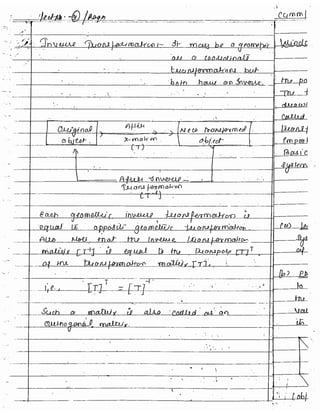 Inverse Transformation - It may be a geometric
or a coordinate
transformations but
both have an Inverse.
Original
object
After
X-mation
(T)
New transformed
object
After Inverse
Transformation
[T⁻¹]
Each geometric inverse transformation is
equal to opposite geometric transformation.
Also Note that the Inverse transformation
matrix [T⁻¹] is equal to the transpose [T]ᵀ
of the transformation matrix [T].
i.e., [T]ᵀ = [T]⁻¹
Such a matrix is also called as an
Orthogonal matrix.
Comm
the po
The
called
Basic
System
(a)
Sys
of
(b)
to
the
in